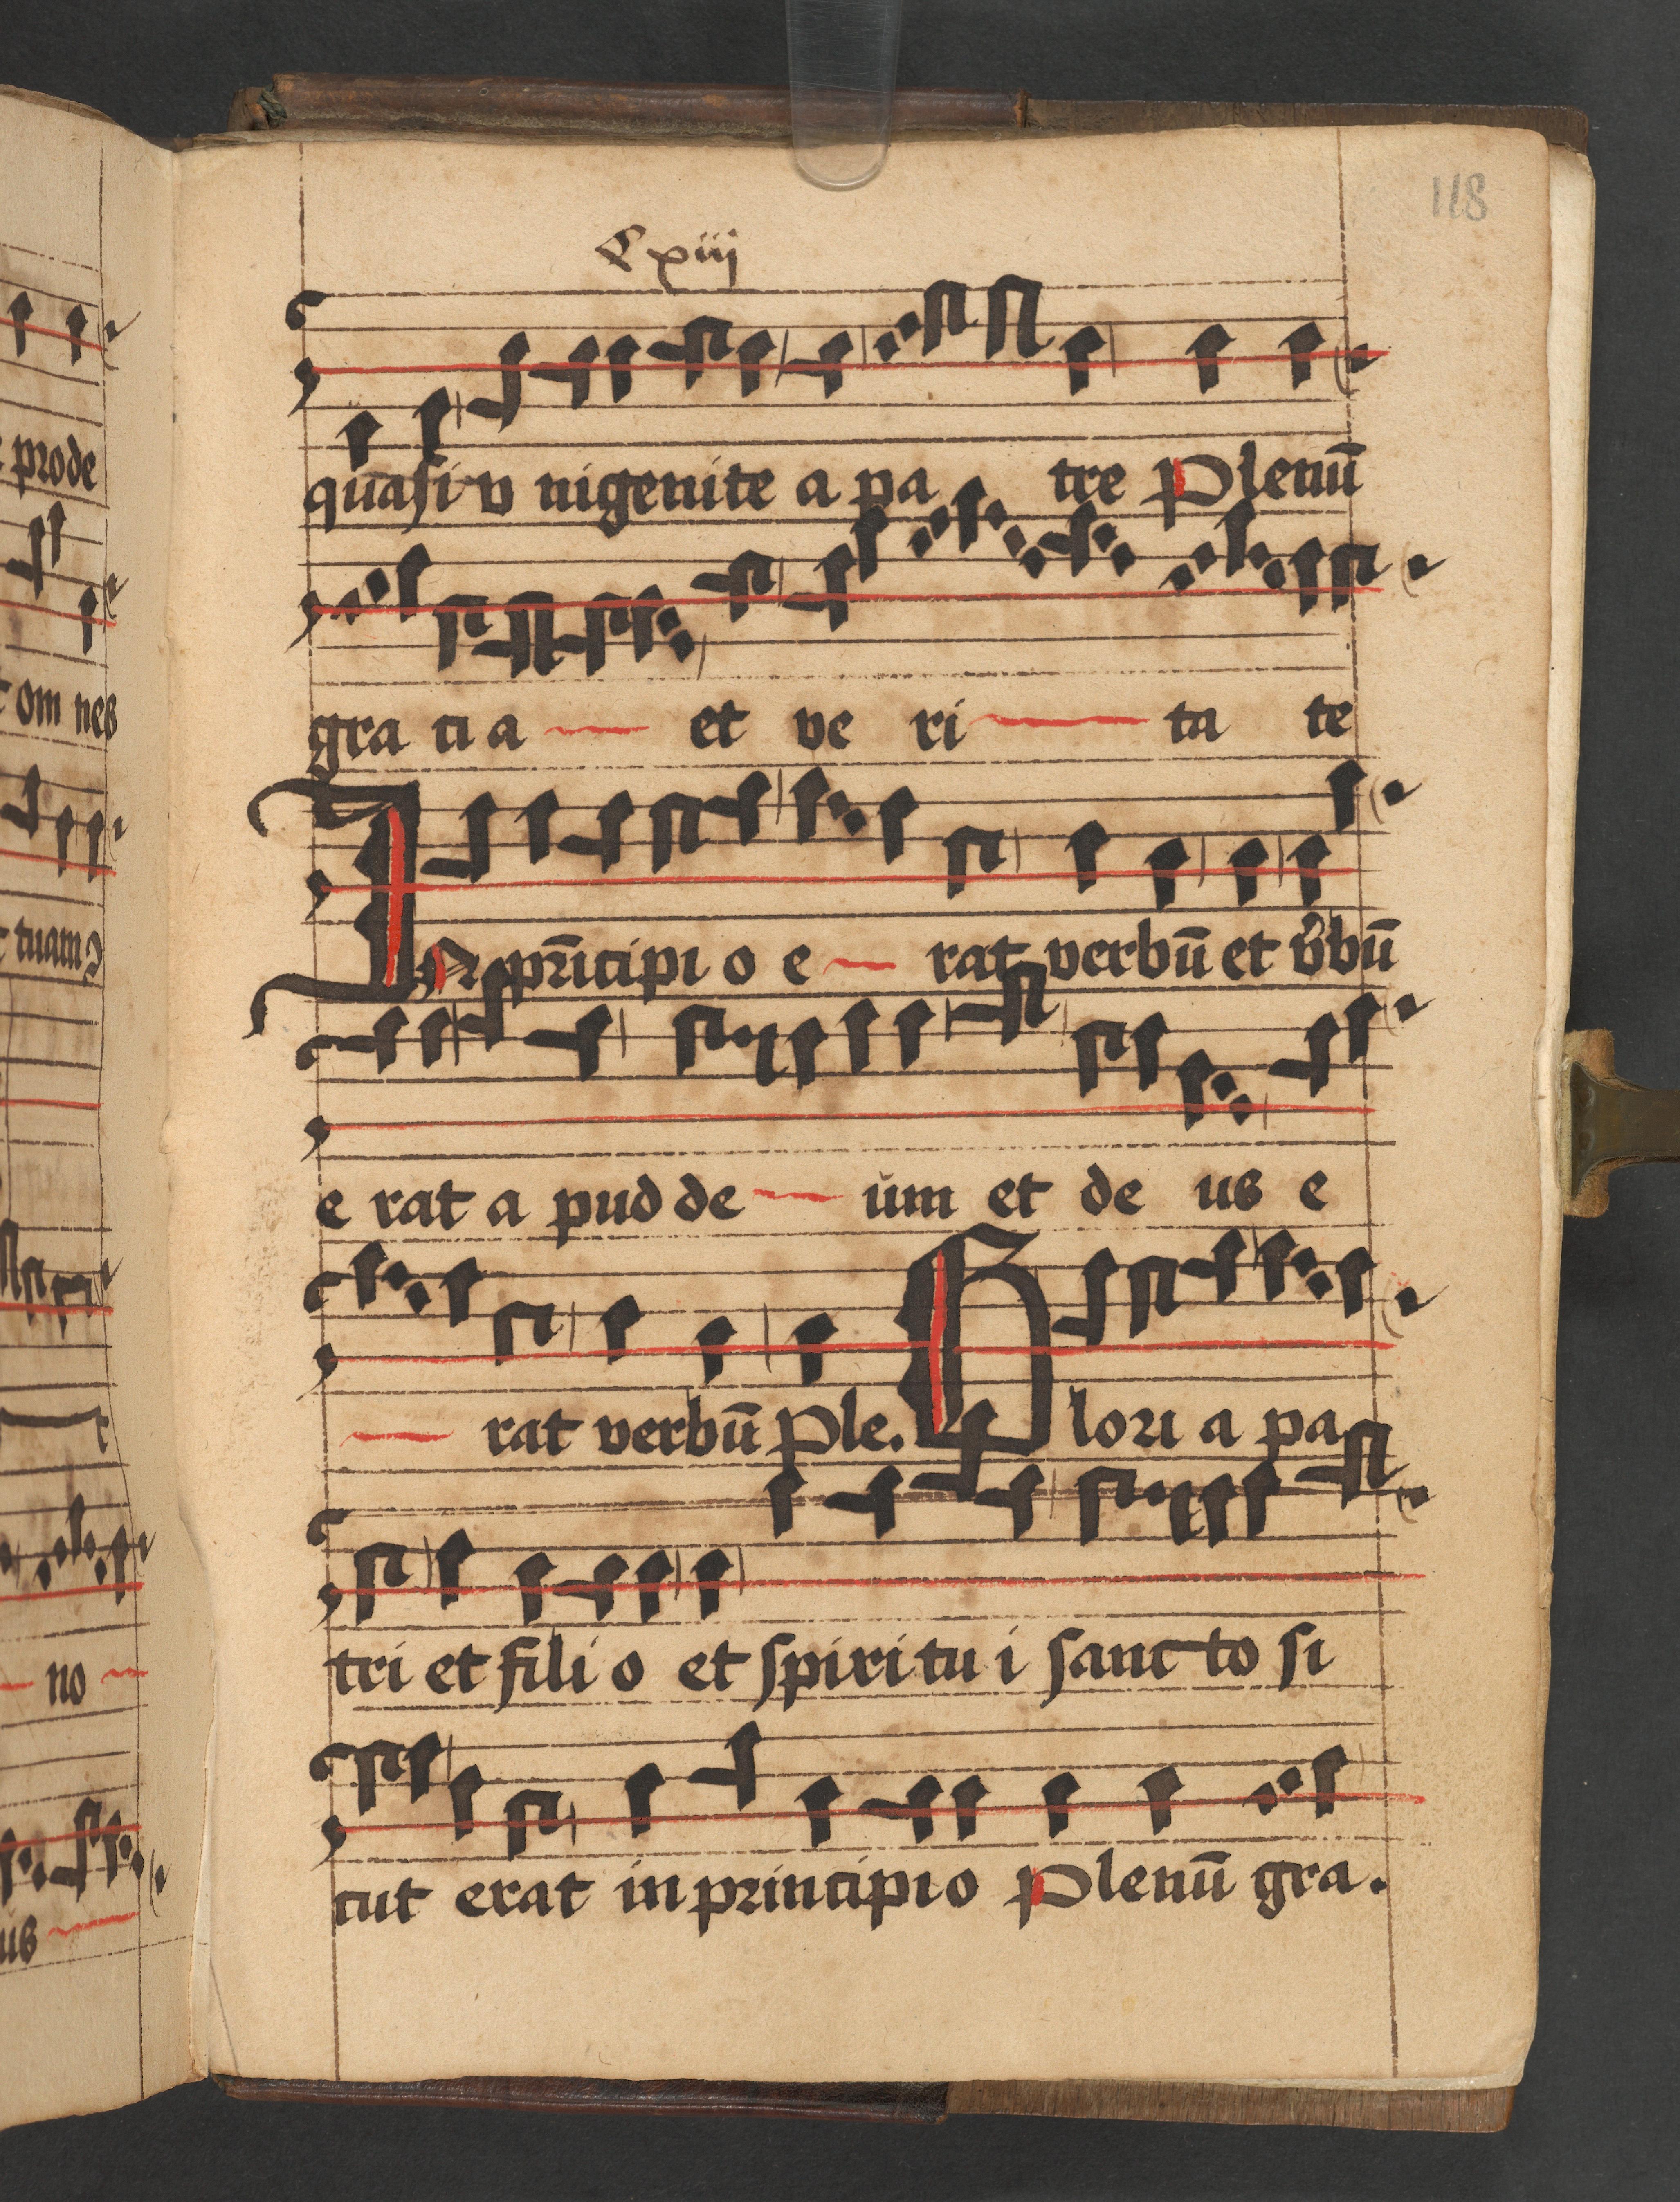 118
Cxiij
prode
quasi v nigenite a pa tre Plenū
om nes
gra ti a et ve ri ta te
tuam
In prīcipi o e rat verbū et v̄bū
e rat a pud de um et de us e
rat verbū Ple. Glori a pa
no
tri et fili o et spiri tu i sanc to si
us
cut erat in principio Plenū gra.